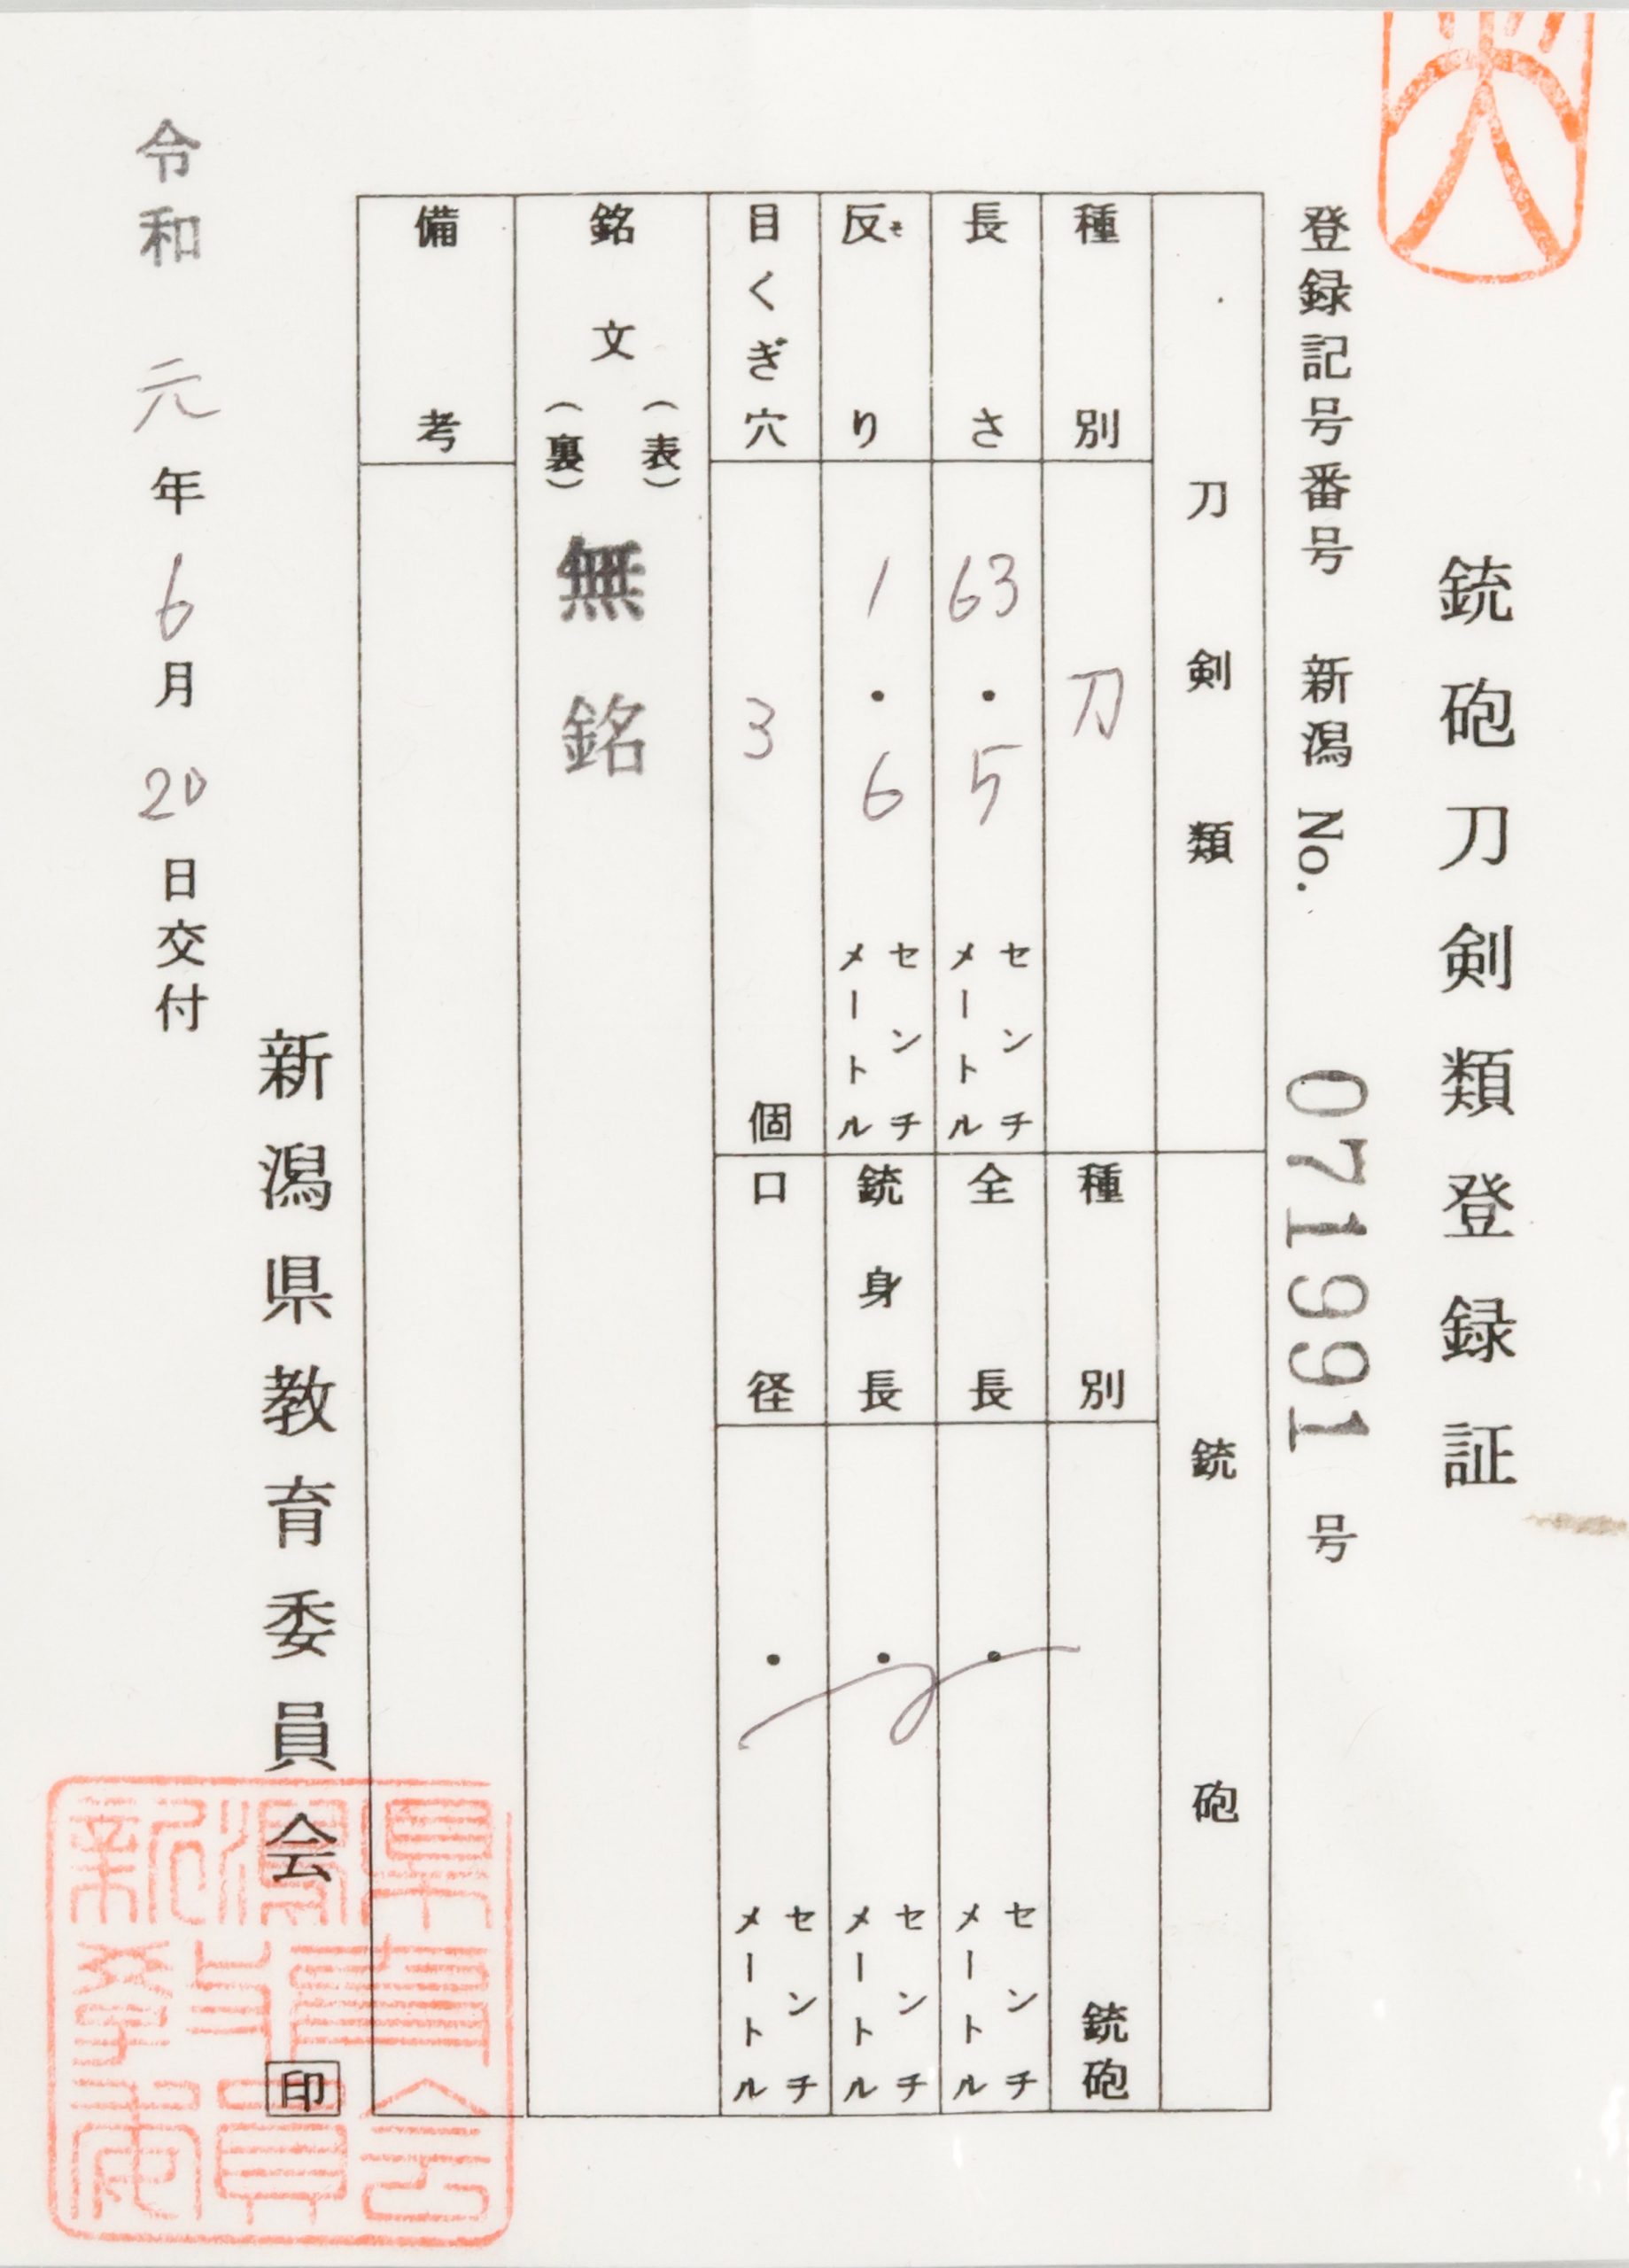 銃砲刀剣類登録証
登録記号番号 新潟 No. 071991 号
刀剣類
銃砲
種別 刀
種別 銃砲
長さ 63.5 センチメートル
全長 ・ センチメートル
反り そ 1.6 センチメートル
銃身長 ・ センチメートル
目くぎ穴 3 個
口径 ・ センチメートル
銘文 (表) (裏) 無銘
備考
新潟県教育委員会 印
令和 元年 6月 20日交付
新潟県教育委員会